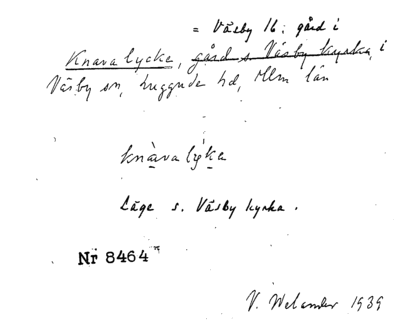 = Väsby 16: gård i
Knavalycke, gård s. Väsby kyrka, i
Väsby sn, Luggude hd, Mlm län
knàvalýka
Läge s. Väsby kyrka.
Nr 8464
V. Welander 1939